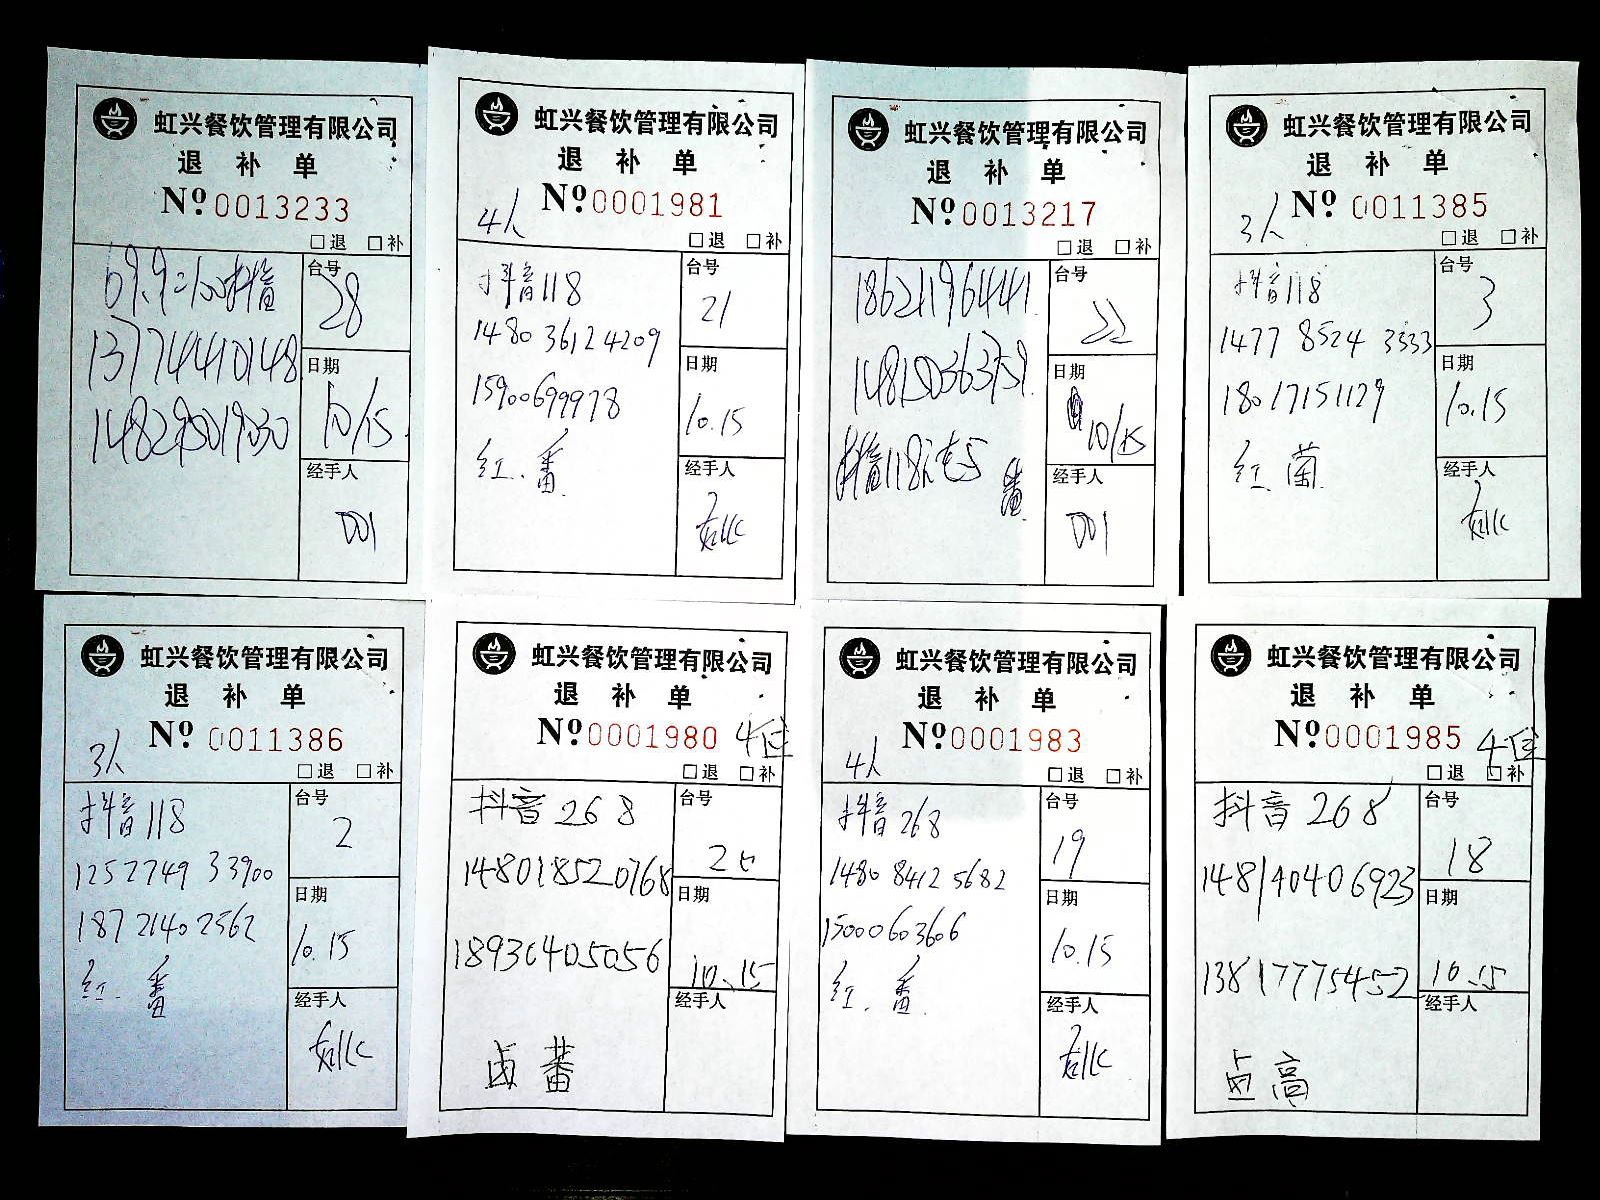 虹兴餐饮管理有限公司
退 补 单
Nº 0013233
□退 □补
69.9=100抖音
13774410148
1482950019030
台号
28
日期
10/15
经手人
001
虹兴餐饮管理有限公司
退 补 单
4人 Nº 0001981
□退 □补
抖音118
1480 3612 4209
15900699978
红. 番
台号
21
日期
10.15
经手人
虹兴餐饮管理有限公司
退 补 单
Nº 0013217
□退 □补
18621196441
抖音118
番
台号
22
日期
10/15
经手人
001
虹兴餐饮管理有限公司
退 补 单
3人 Nº 0011385
□退 □补
抖音118
1477 8524 3333
18017151129
红. 菌
台号
3
日期
10.15
经手人
虹兴餐饮管理有限公司
退 补 单
3人 Nº 0011386
□退 □补
抖音118
1252749 33900
187 2140 2562
红. 番
台号
2
日期
10.15
经手人
虹兴餐饮管理有限公司
退 补 单
Nº 0001980 4位
□退 □补
抖音268
148018520768
18930405056
卤 番
台号
日期
10.15
经手人
虹兴餐饮管理有限公司
退 补 单
4人 Nº 0001983
□退 □补
抖音268
1480 8412 5682
15000603606
红. 番
台号
19
日期
10.15
经手人
虹兴餐饮管理有限公司
退 补 单
Nº 0001985 4位
□退 □补
抖音268
148140406923
13817775452
卤 高
台号
18
日期
10.15
经手人